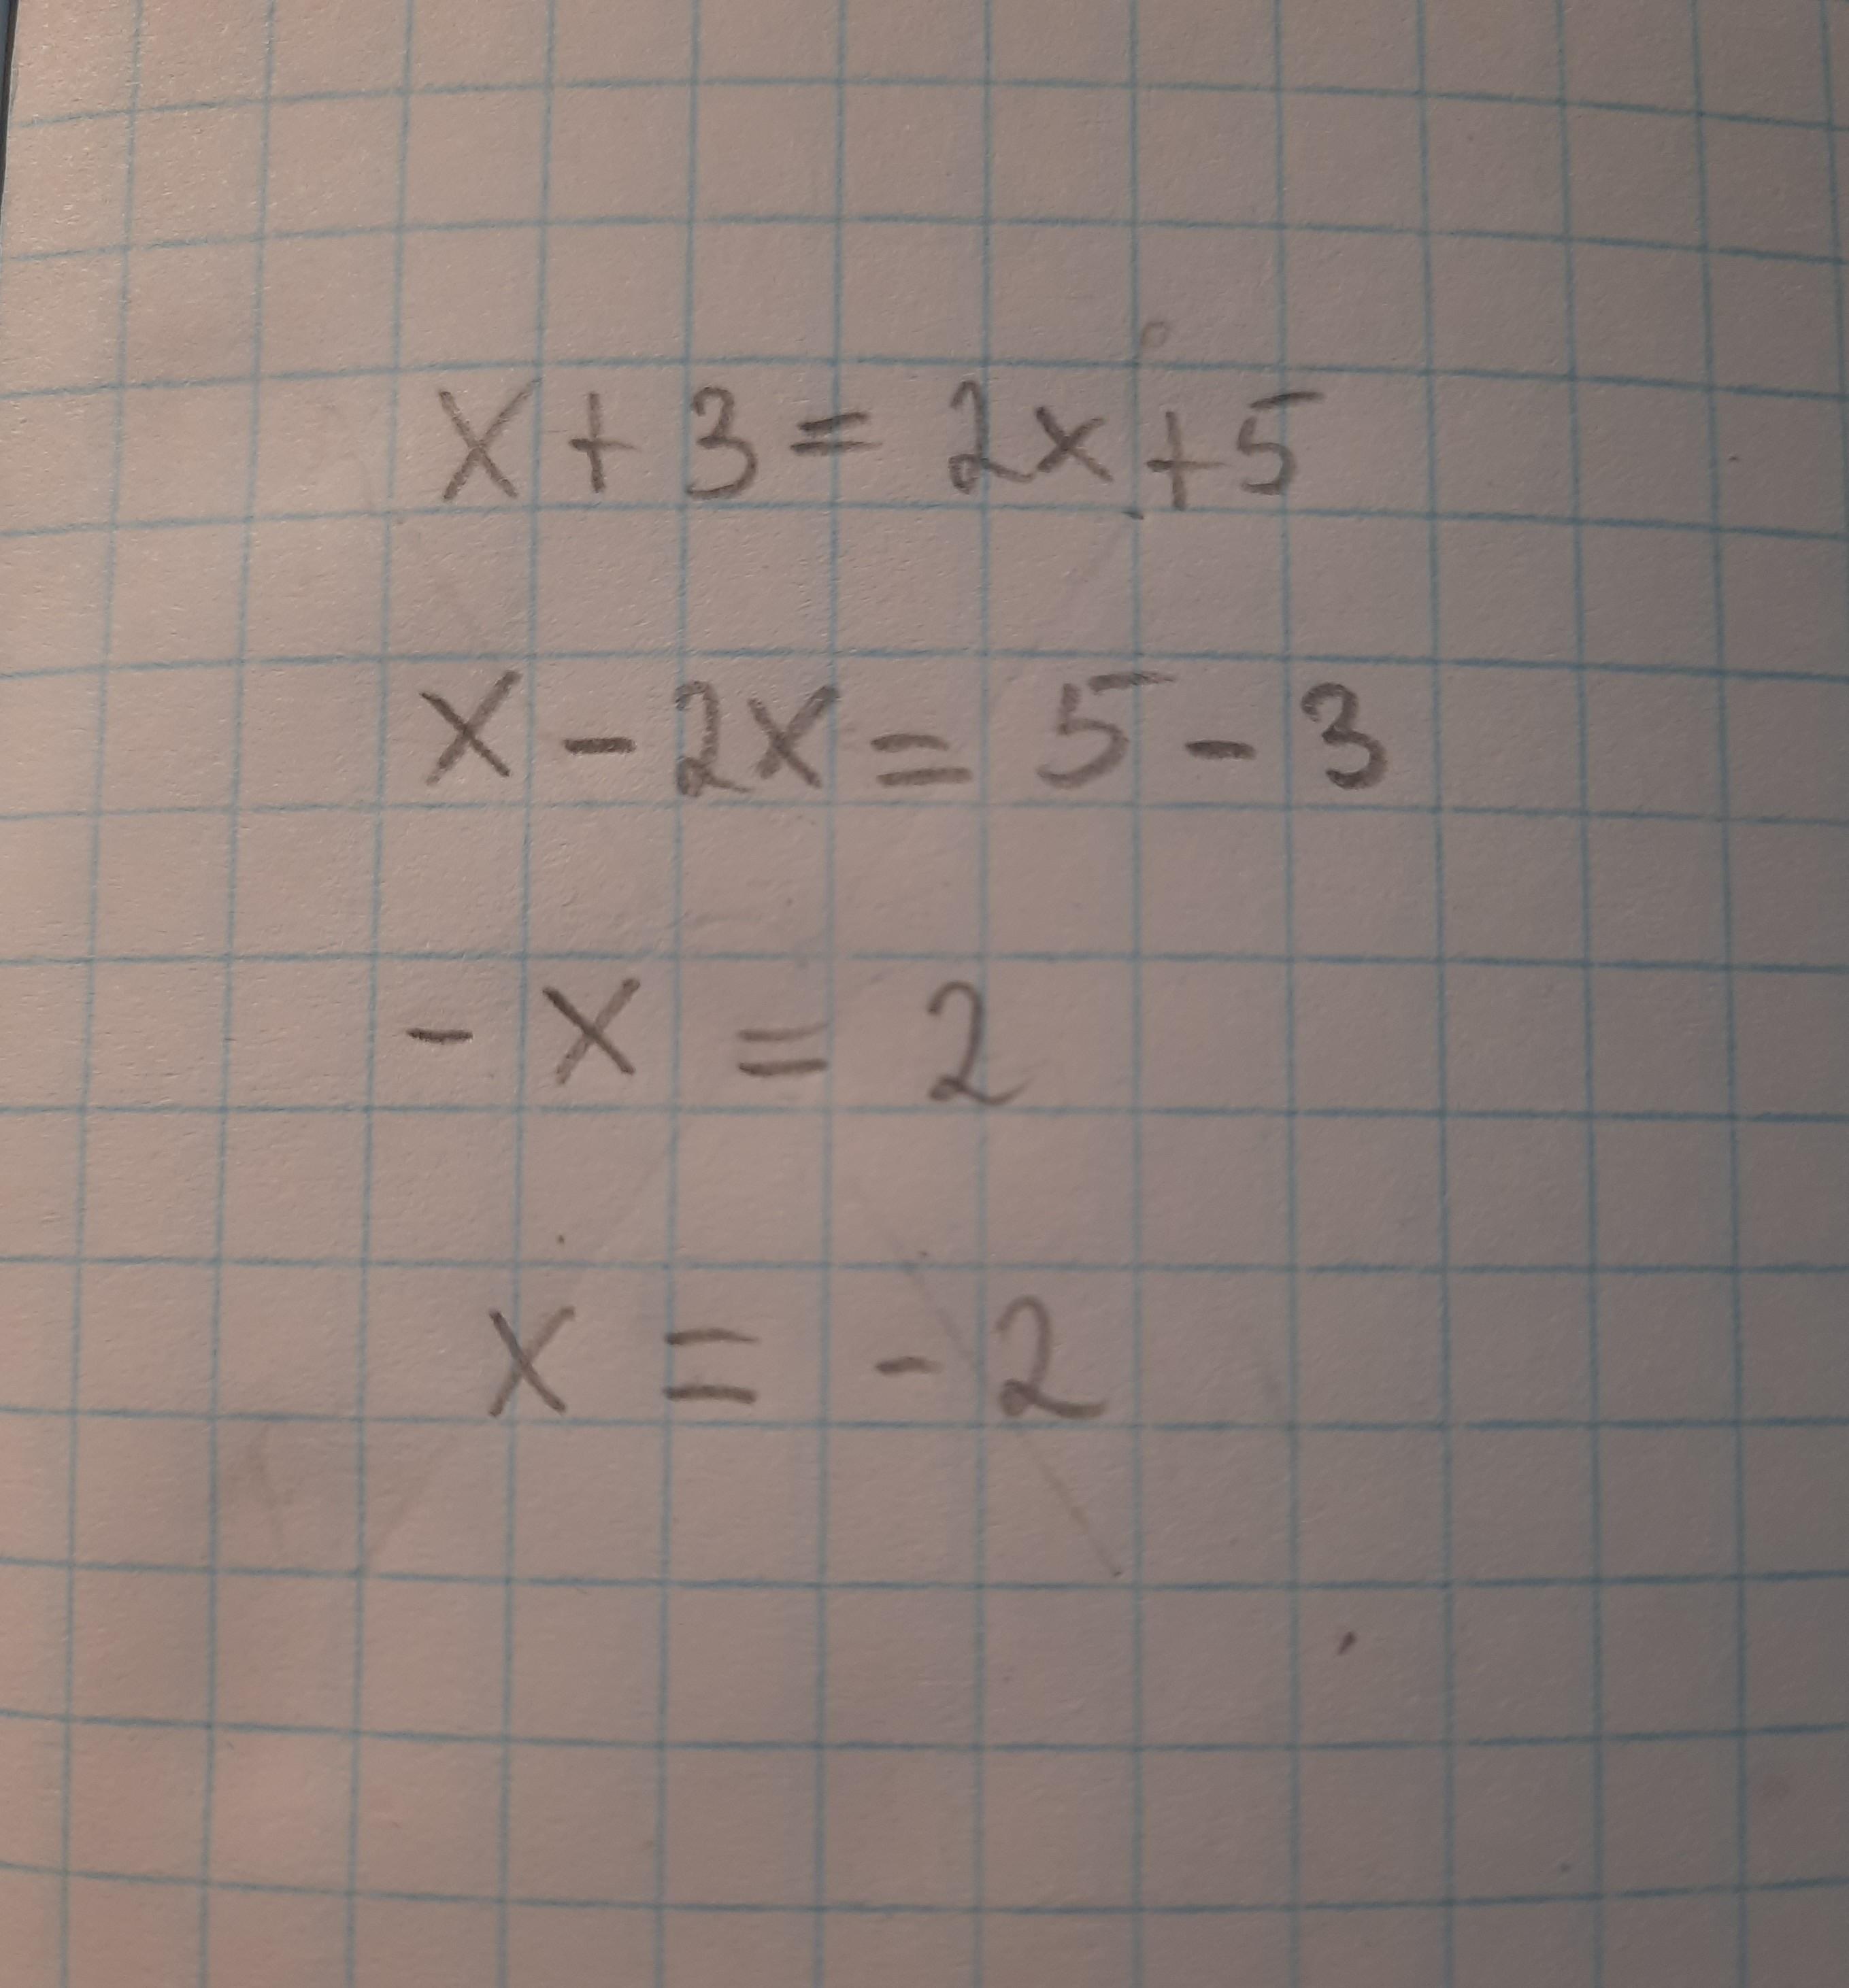 x + 3 = 2x + 5
x - 2x = 5 - 3
- x = 2
x = - 2